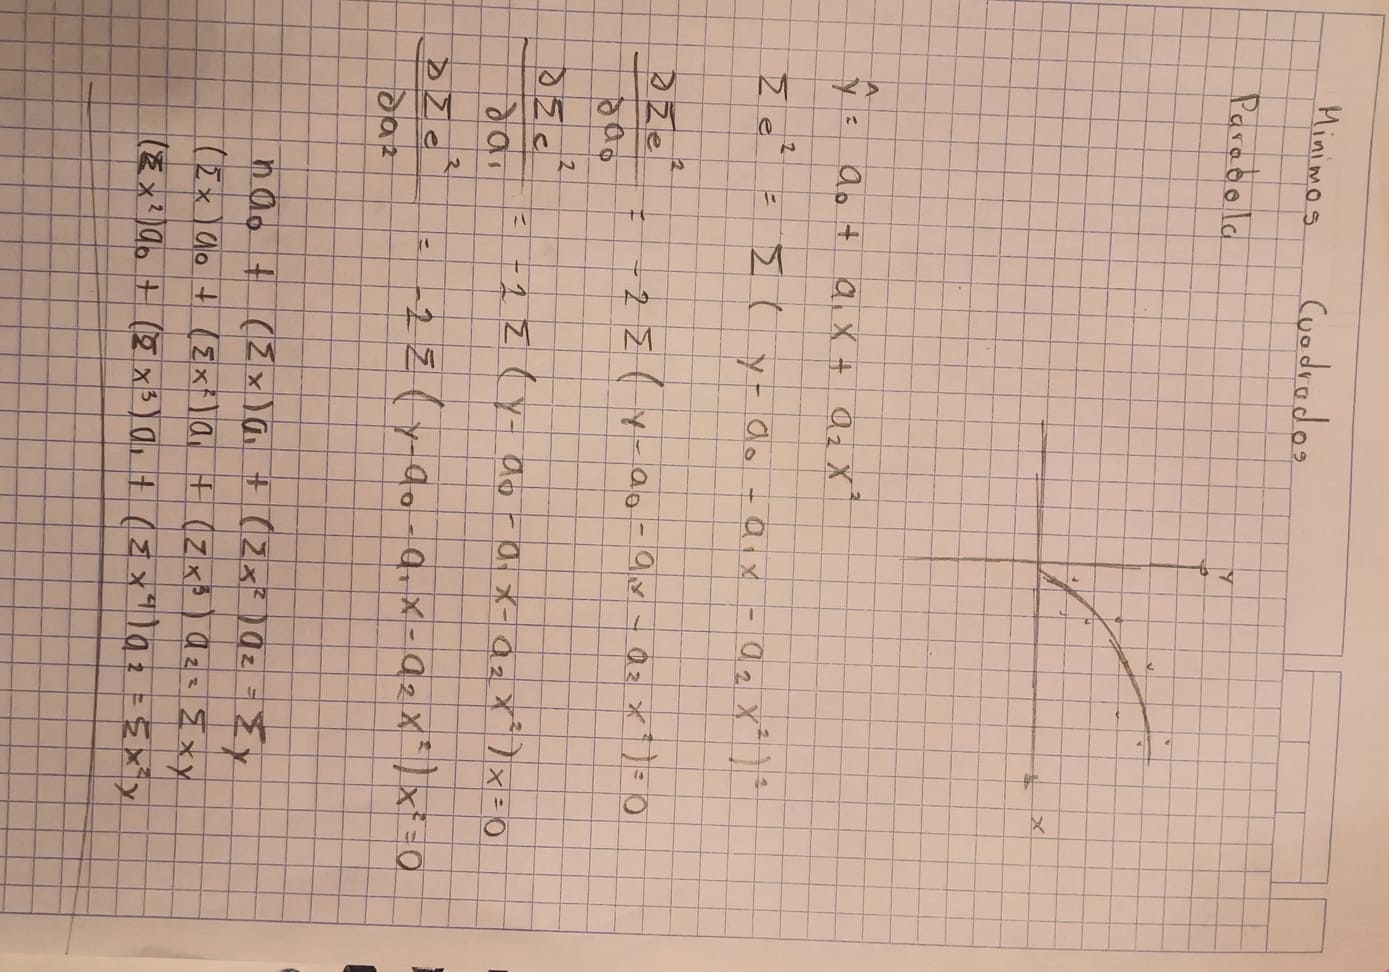 Minimos Cuadrados
Parabola
y
x
ŷ = a₀ + a₁x + a₂x²
Σe² = Σ(y - a₀ - a₁x - a₂x²)²
∂Σe²/∂a₀ = -2Σ(y - a₀ - a₁x - a₂x²) = 0
∂Σe²/∂a₁ = -2Σ(y - a₀ - a₁x - a₂x²)x = 0
∂Σe²/∂a₂ = -2Σ(y - a₀ - a₁x - a₂x²)x² = 0
na₀ + (Σx)a₁ + (Σx²)a₂ = Σy
(Σx)a₀ + (Σx²)a₁ + (Σx³)a₂ = Σxy
(Σx²)a₀ + (Σx³)a₁ + (Σx⁴)a₂ = Σx²y